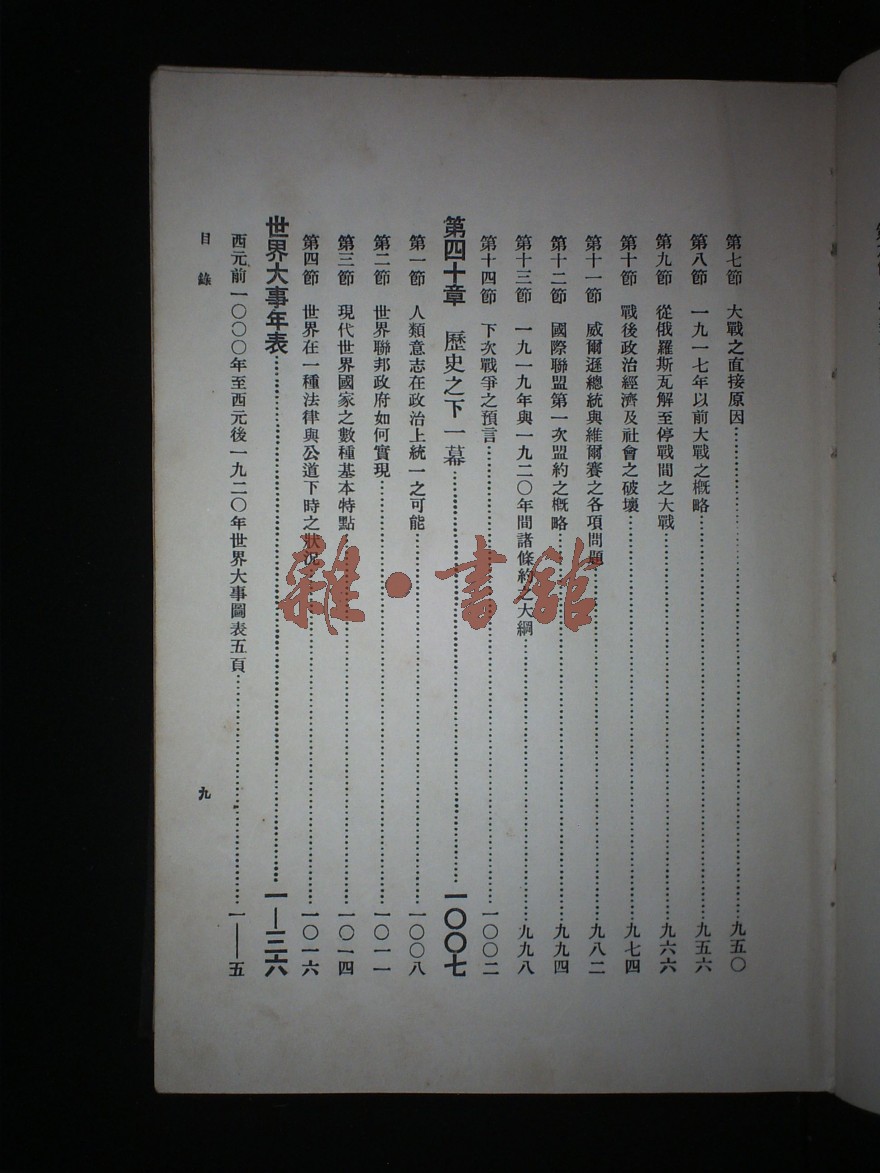 第七節　大戰之直接原因……九五〇
第八節　一九一七年以前大戰之概略……九五六
第九節　從俄羅斯瓦解至停戰間之大戰……九六六
第十節　戰後政治經濟及社會之破壞……九七四
第十一節　威爾遜總統與維爾賽之各項問題……九八二
第十二節　國際聯盟第一次盟約之概略……九九四
第十三節　一九一九年與一九二〇年間諸條約之大綱……九九八
第十四節　下次戰爭之預言……一〇〇二
第四十章　歷史之下一幕……一〇〇七
第一節　人類意志在政治上統一之可能……一〇〇八
第二節　世界聯邦政府如何實現……一〇一一
第三節　現代世界國家之數種基本特點……一〇一四
第四節　世界在一種法律與公道下時之狀況……一〇一六
世界大事年表……一—三六
西元前一〇〇〇年至西元後一九二〇年世界大事圖表五頁……一—五
目錄
九
雜·書館